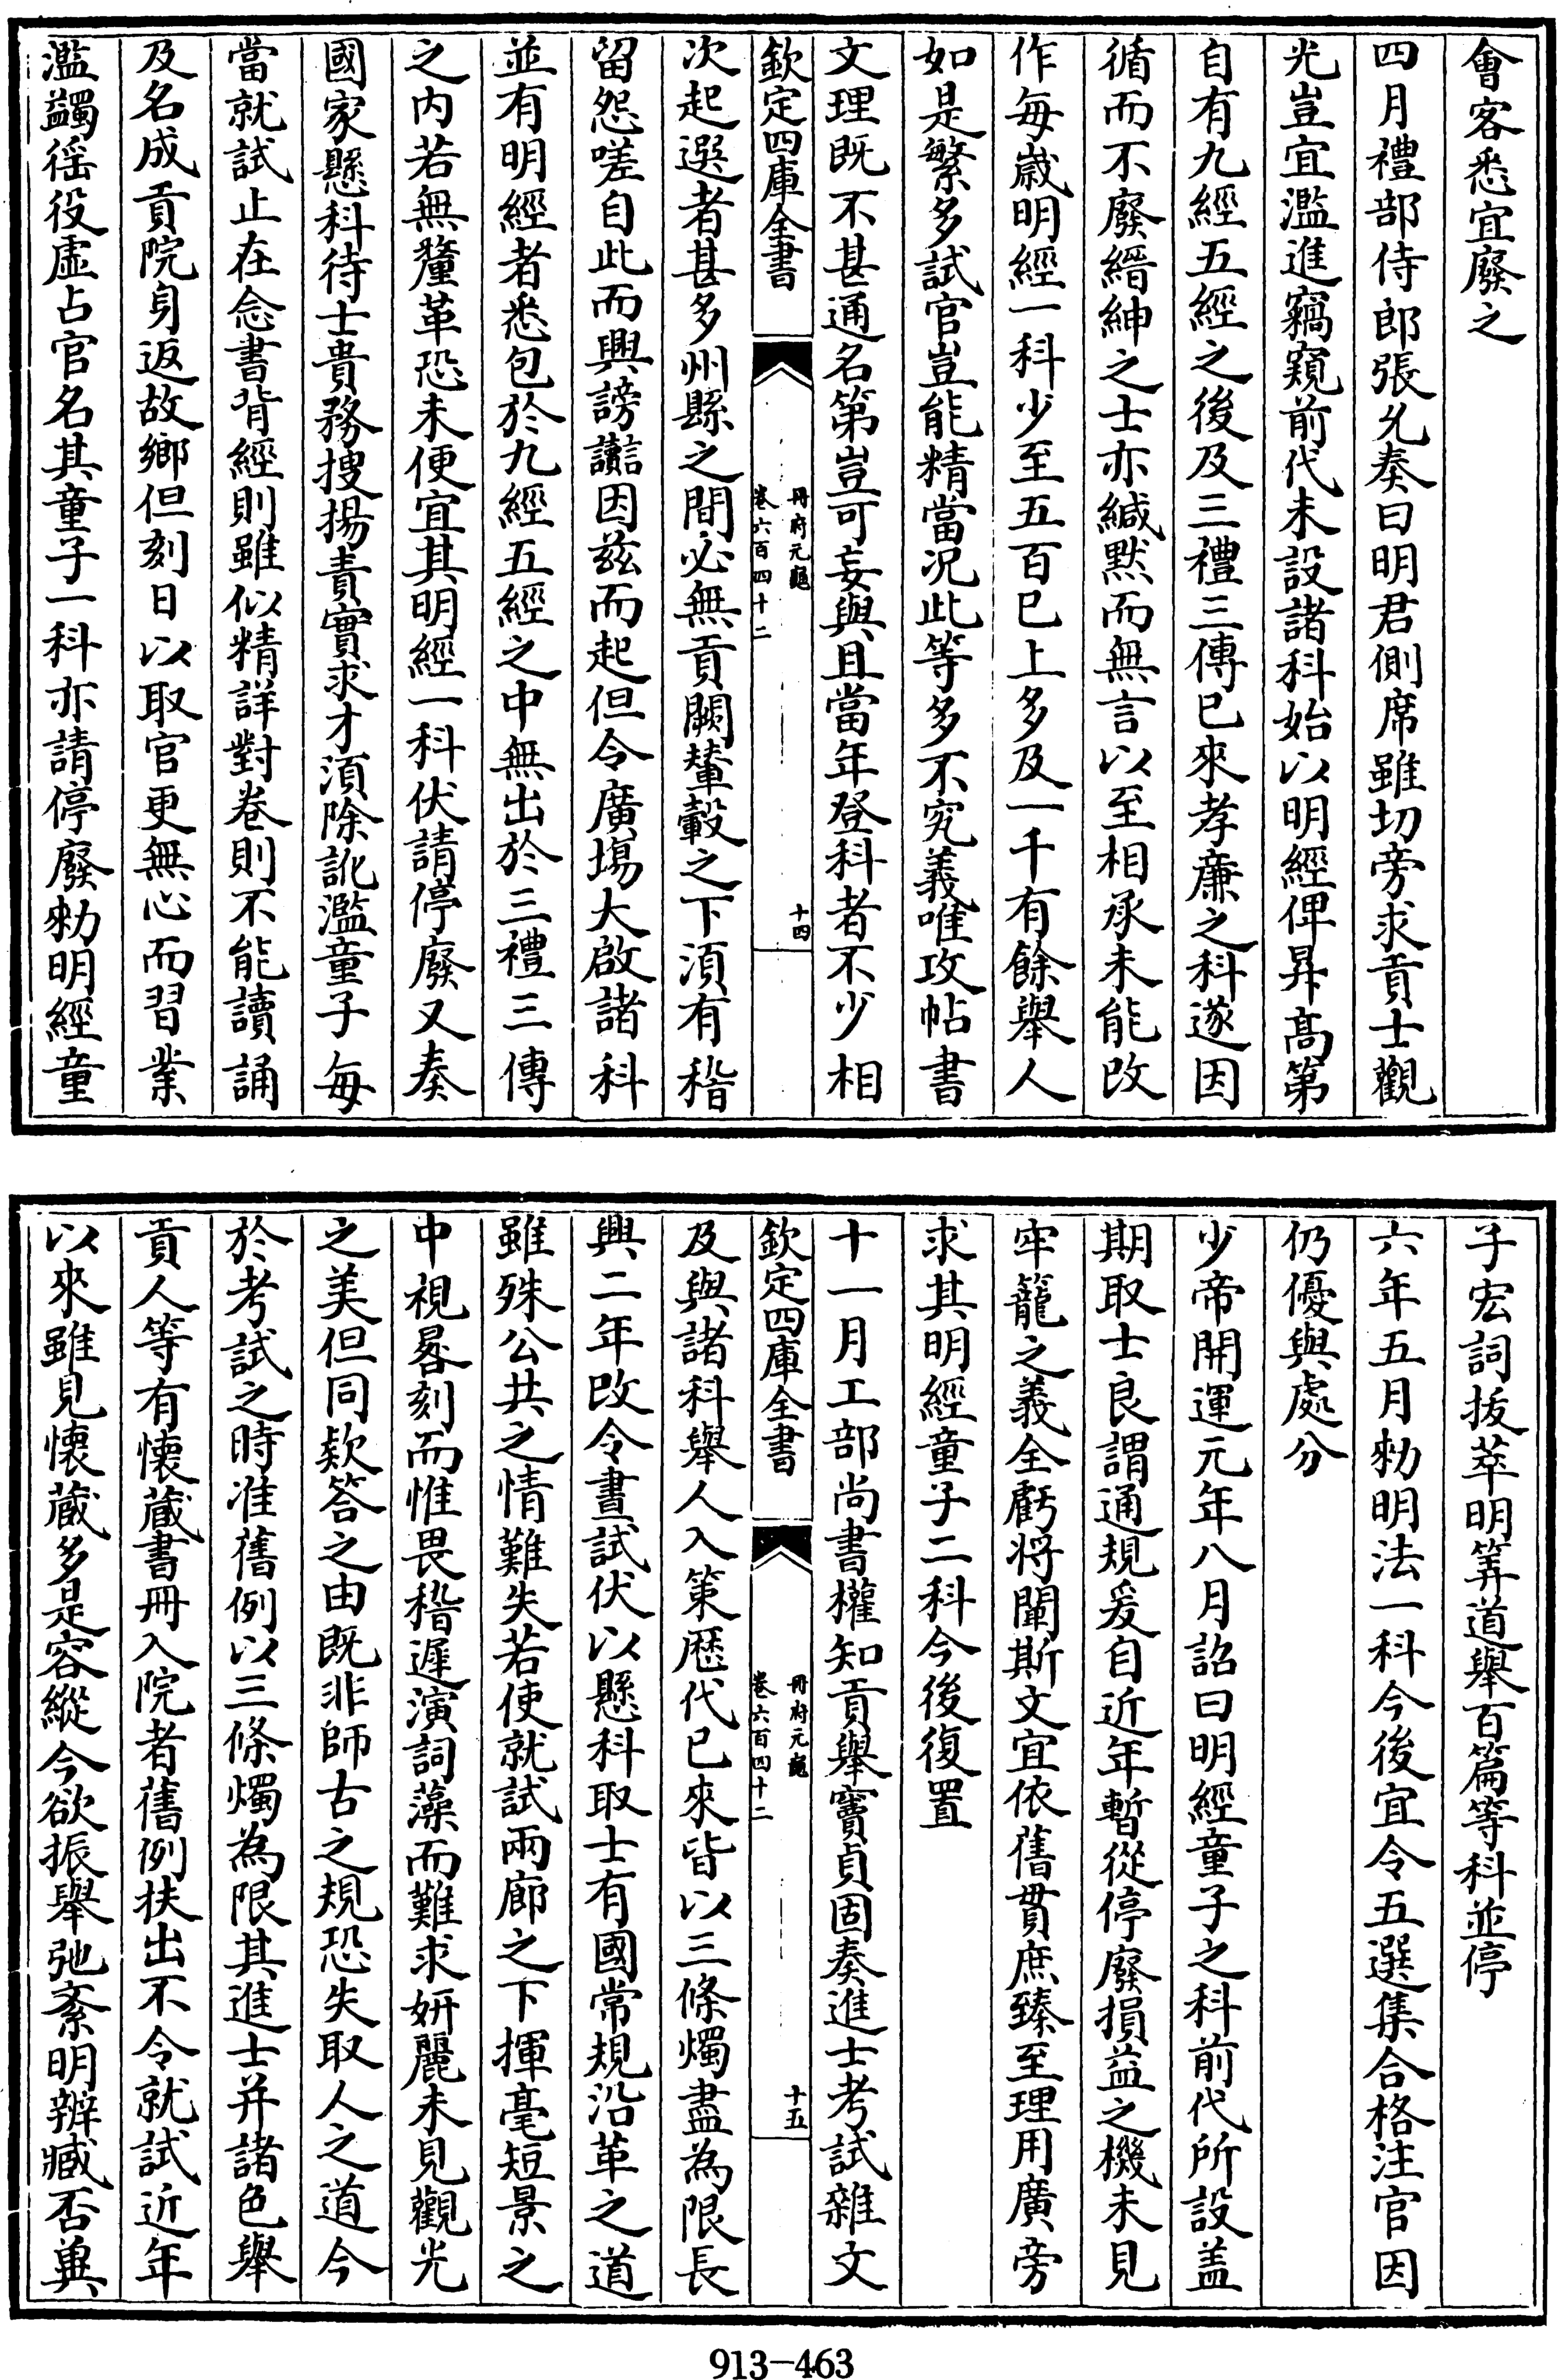 會客悉宜廢之
四月禮部侍郎張允奏曰明君側席雖切旁求貢士觀
光豈宜濫進竊窺前代未設諸科始以明經俾昇高第
自有九經五經之後及三禮三傳已來孝廉之科遂因
循而不廢縉紳之士亦緘默而無言以至相承未能改
作每歲明經一科少至五百已上多及一千有餘舉人
如是繁多試官豈能精當況此等多不究義唯攻帖書
文理既不甚通名第豈可妄與且當年登科者不少相
欽定四庫全書
冊府元龜
卷六百四十二
十四
次起選者甚多州縣之間必無貢闕輦轂之下須有稽
留怨嗟自此而興謗讟因兹而起但令廣場大啟諸科
並有明經者悉包於九經五經之中無出於三禮三傳
之内若無釐革恐未便宜其明經一科伏請停廢又奏
國家懸科待士貴務搜揚責實求才須除訛濫童子每
當就試止在念書背經則雖似精詳對卷則不能讀誦
及名成貢院身返故鄉但刻日以取官更無心而習業
濫蠲徭役虚占官名其童子一科亦請停廢勑明經童
子宏詞拔萃明筭道舉百篇等科並停
六年五月勑明法一科今後宜令五選集合格注官因
仍優與處分
少帝開運元年八月詔曰明經童子之科前代所設盖
期取士良謂通規爰自近年暫從停廢損益之機未見
牢籠之義全虧将闡斯文宜依舊貫庶臻至理用廣旁
求其明經童子二科今後復置
十一月工部尚書權知貢舉竇貞固奏進士考試雜文
欽定四庫全書
冊府元龜
卷六百四十二
十五
及與諸科舉人入策歷代已來皆以三條燭盡為限長
興二年改令晝試伏以懸科取士有國常規沿革之道
雖殊公共之情難失若使就試兩廊之下揮毫短景之
中視晷刻而惟畏稽遲演詞藻而難求妍麗未見觀光
之美但同欵答之由既非師古之規恐失取人之道今
於考試之時准舊例以三條燭為限其進士并諸色舉
貢人等有懷藏書冊入院者舊例扶出不令就試近年
以來雖見懷藏多是容縱今欲振舉弛紊明辨臧否冀
913-463